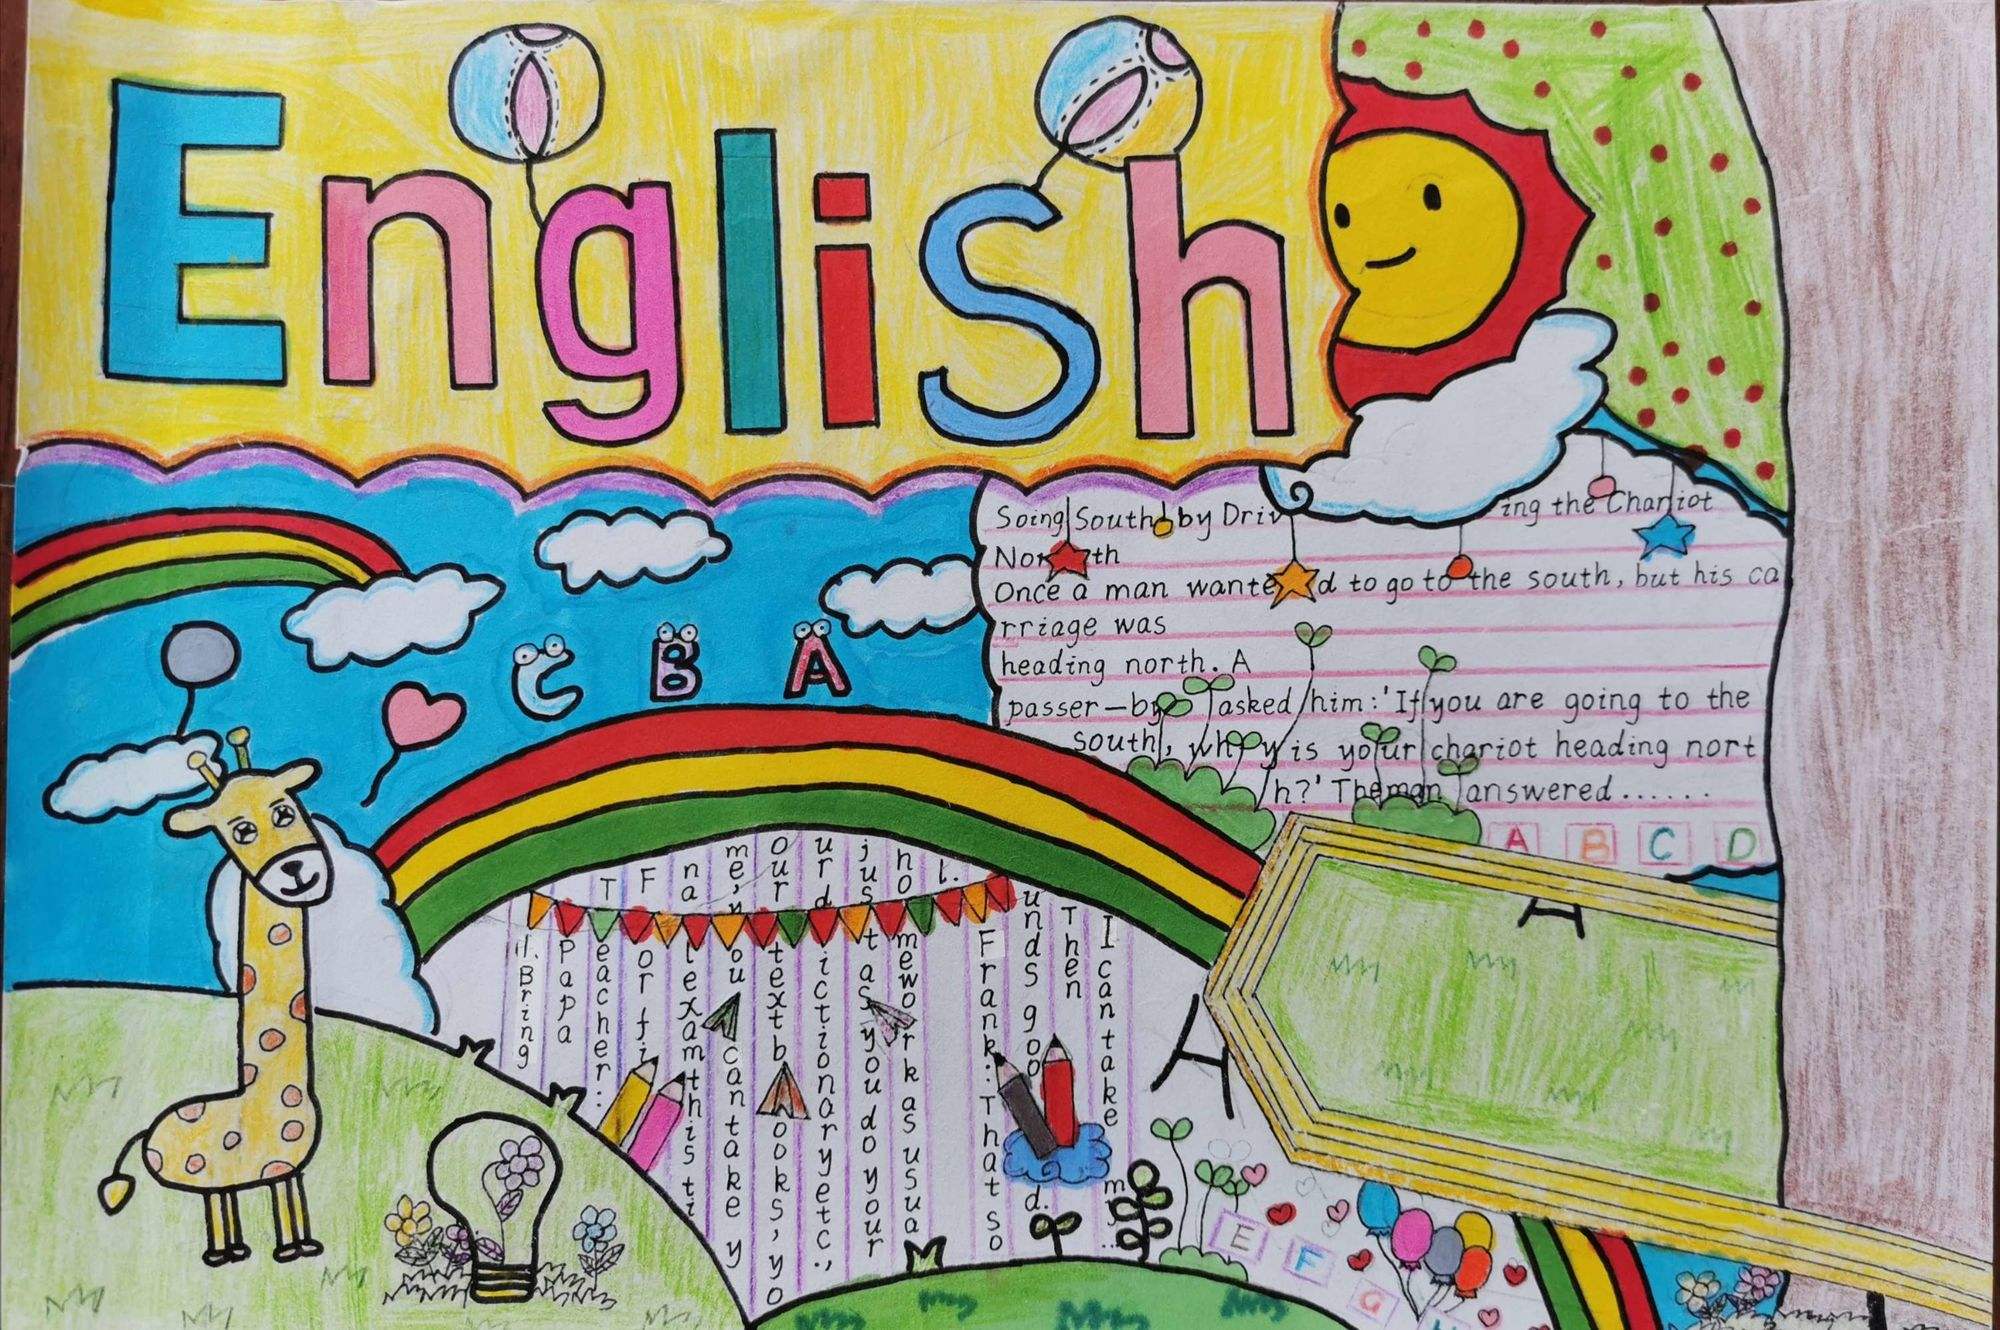 English
C B A
Soing South by Driving the Chariot
North
Once a man wanted to go to the south, but his ca
rriage was
heading north. A
passer-by asked him: 'If you are going to the
south, why is your chariot heading nort
h?' The man answered......
A B C D
1. Bring
Papa
Teacher:
For fi
nal exam this ti
me, you can take y
our textbooks, yo
ur dictionary etc.,
just as you do your
homework as usua
l.
Frank: That so
unds good.
Then
I can take
my
E F G